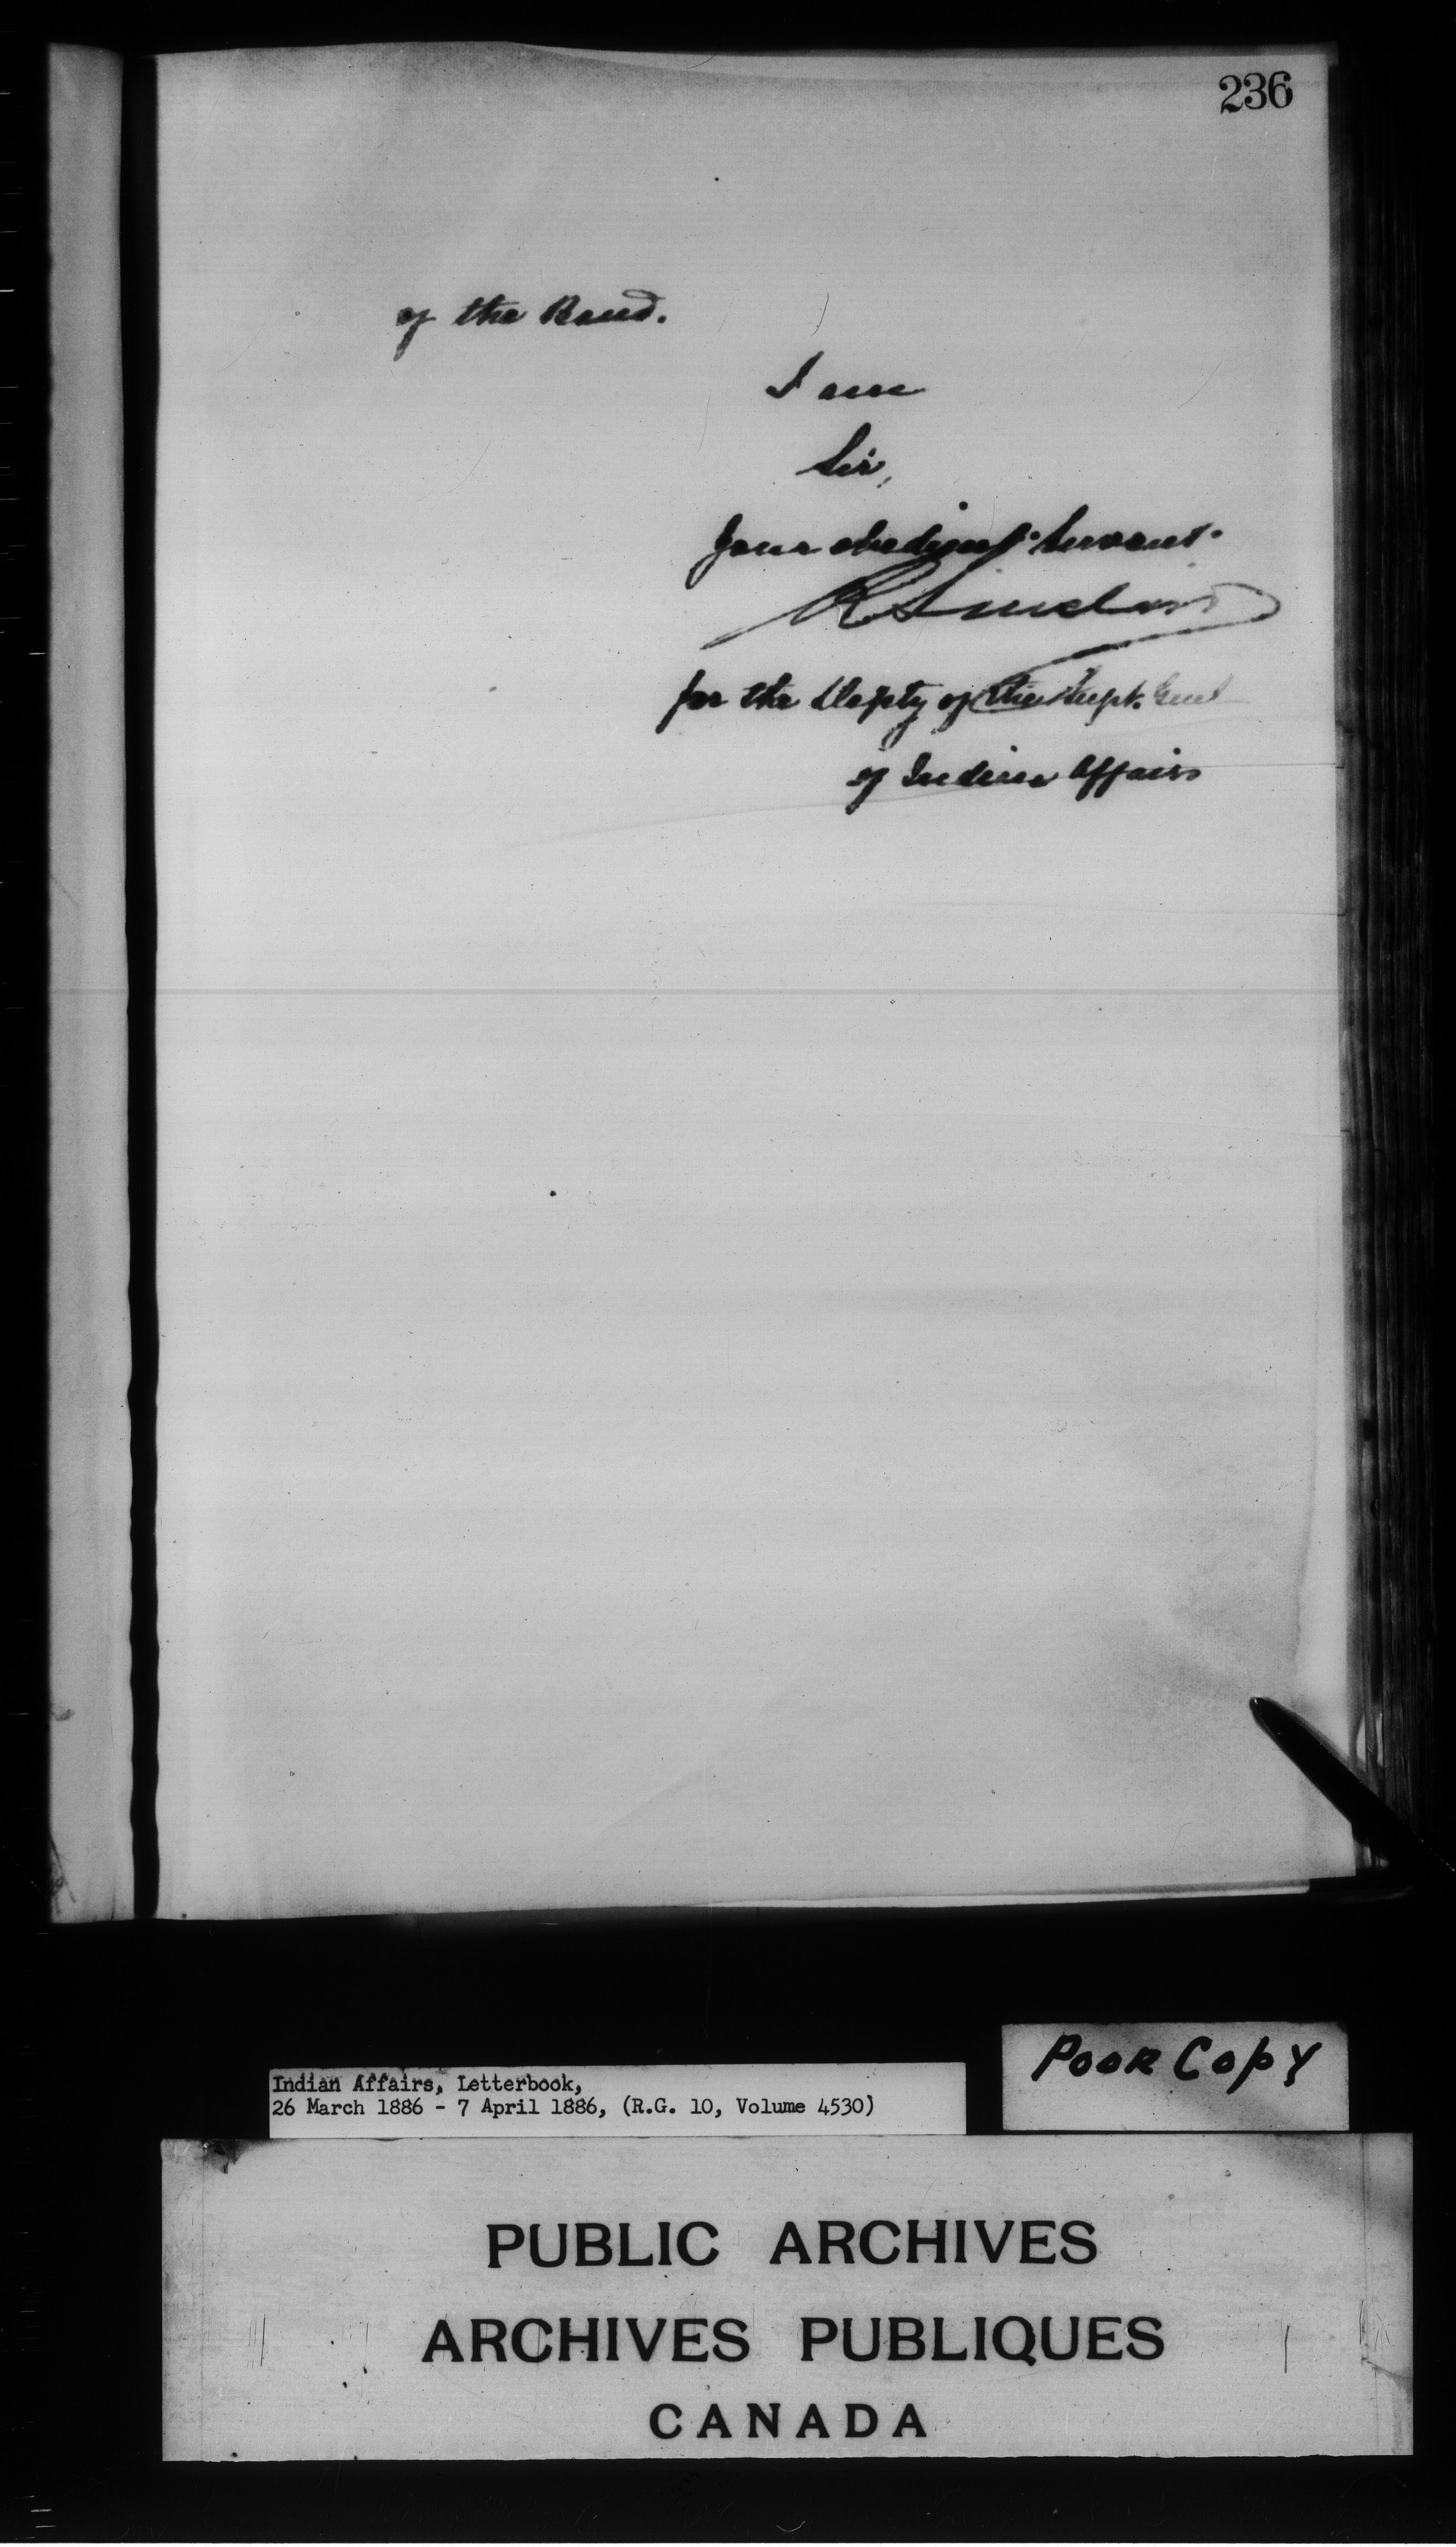 236
of the Band.
I am
Sir,
Your obedient Servant
R Sinclair
for the Depty of the Supt. Genl
of Indian Affairs
Poor Copy
Indian Affairs, Letterbook,
26 March 1886 - 7 April 1886, (R.G. 10, Volume 4530)
PUBLIC ARCHIVES
ARCHIVES PUBLIQUES
CANADA